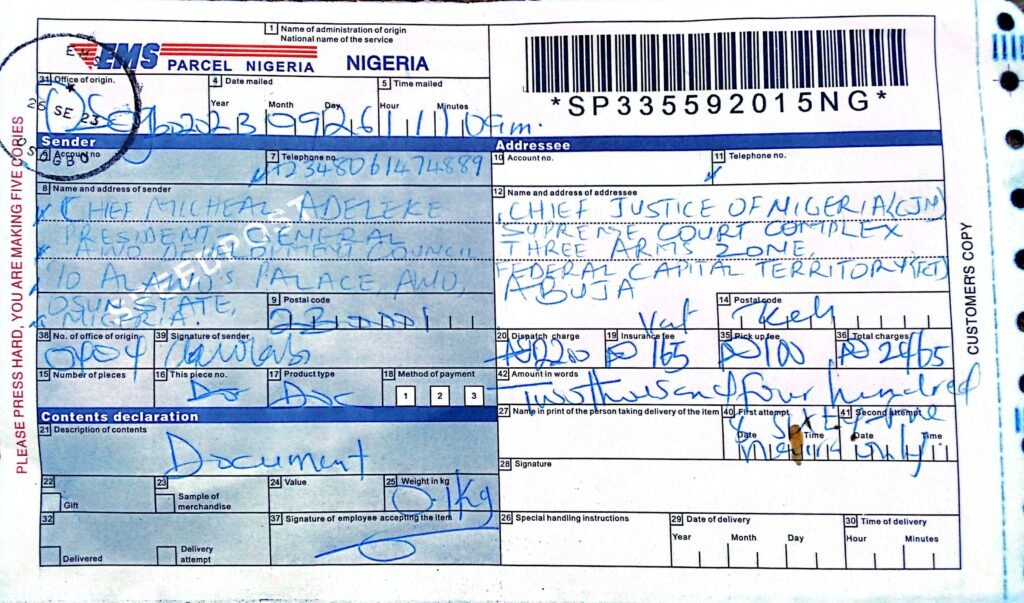 1 Name of administration of origin
National name of the service
EMS
PARCEL NIGERIA NIGERIA
*SP335592015NG*
31 Office of origin.
4 Date mailed
5 Time mailed
Year Month Day Hour Minutes
25 SE 23
OSOGBO
2023 09 26 11 09m.
PLEASE PRESS HARD, YOU ARE MAKING FIVE COPIES
Sender
Addressee
6 Account no
7 Telephone no.
+2348061474889
10 Account no.
11 Telephone no.
8 Name and address of sender
CHIEF MICHEAL ADELEKE
PRESIDENT GENERAL
AWO DEVELOPMENT COUNCIL
PALACE, AWO,
OSUN STATE,
NIGERIA.
SPEEDPOST
9 Postal code
12 Name and address of addressee
CHIEF JUSTICE OF NIGERIA (CJN)
SUPREME COURT COMPLEX
THREE ARMS ZONE,
FEDERAL CAPITAL TERRITORY (FCT)
ABUJA
14 Postal code
Vat
38 No. of office of origin
39 Signature of sender
20 Dispatch charge
19 Insurance fee
35 Pick up fee
36 Total charges
2200 165 100 2465
15 Number of pieces
16 This piece no.
17 Product type
Doc
18 Method of payment
1 2 3
42 Amount in words
Two thousand four hundred
& sixty five
naira only
Contents declaration
21 Description of contents
Document
27 Name in print of the person taking delivery of the item
40 First attempt
Date Time
41 Second attempt
Date Time
28 Signature
22
Gift
23
Sample of
merchandise
24 Value
25 Weight in kg
0.1kg
32
Delivered
Delivery
attempt
37 Signature of employee accepting the item
26 Special handling instructions
29 Date of delivery
Year Month Day
30 Time of delivery
Hour Minutes
CUSTOMER'S COPY